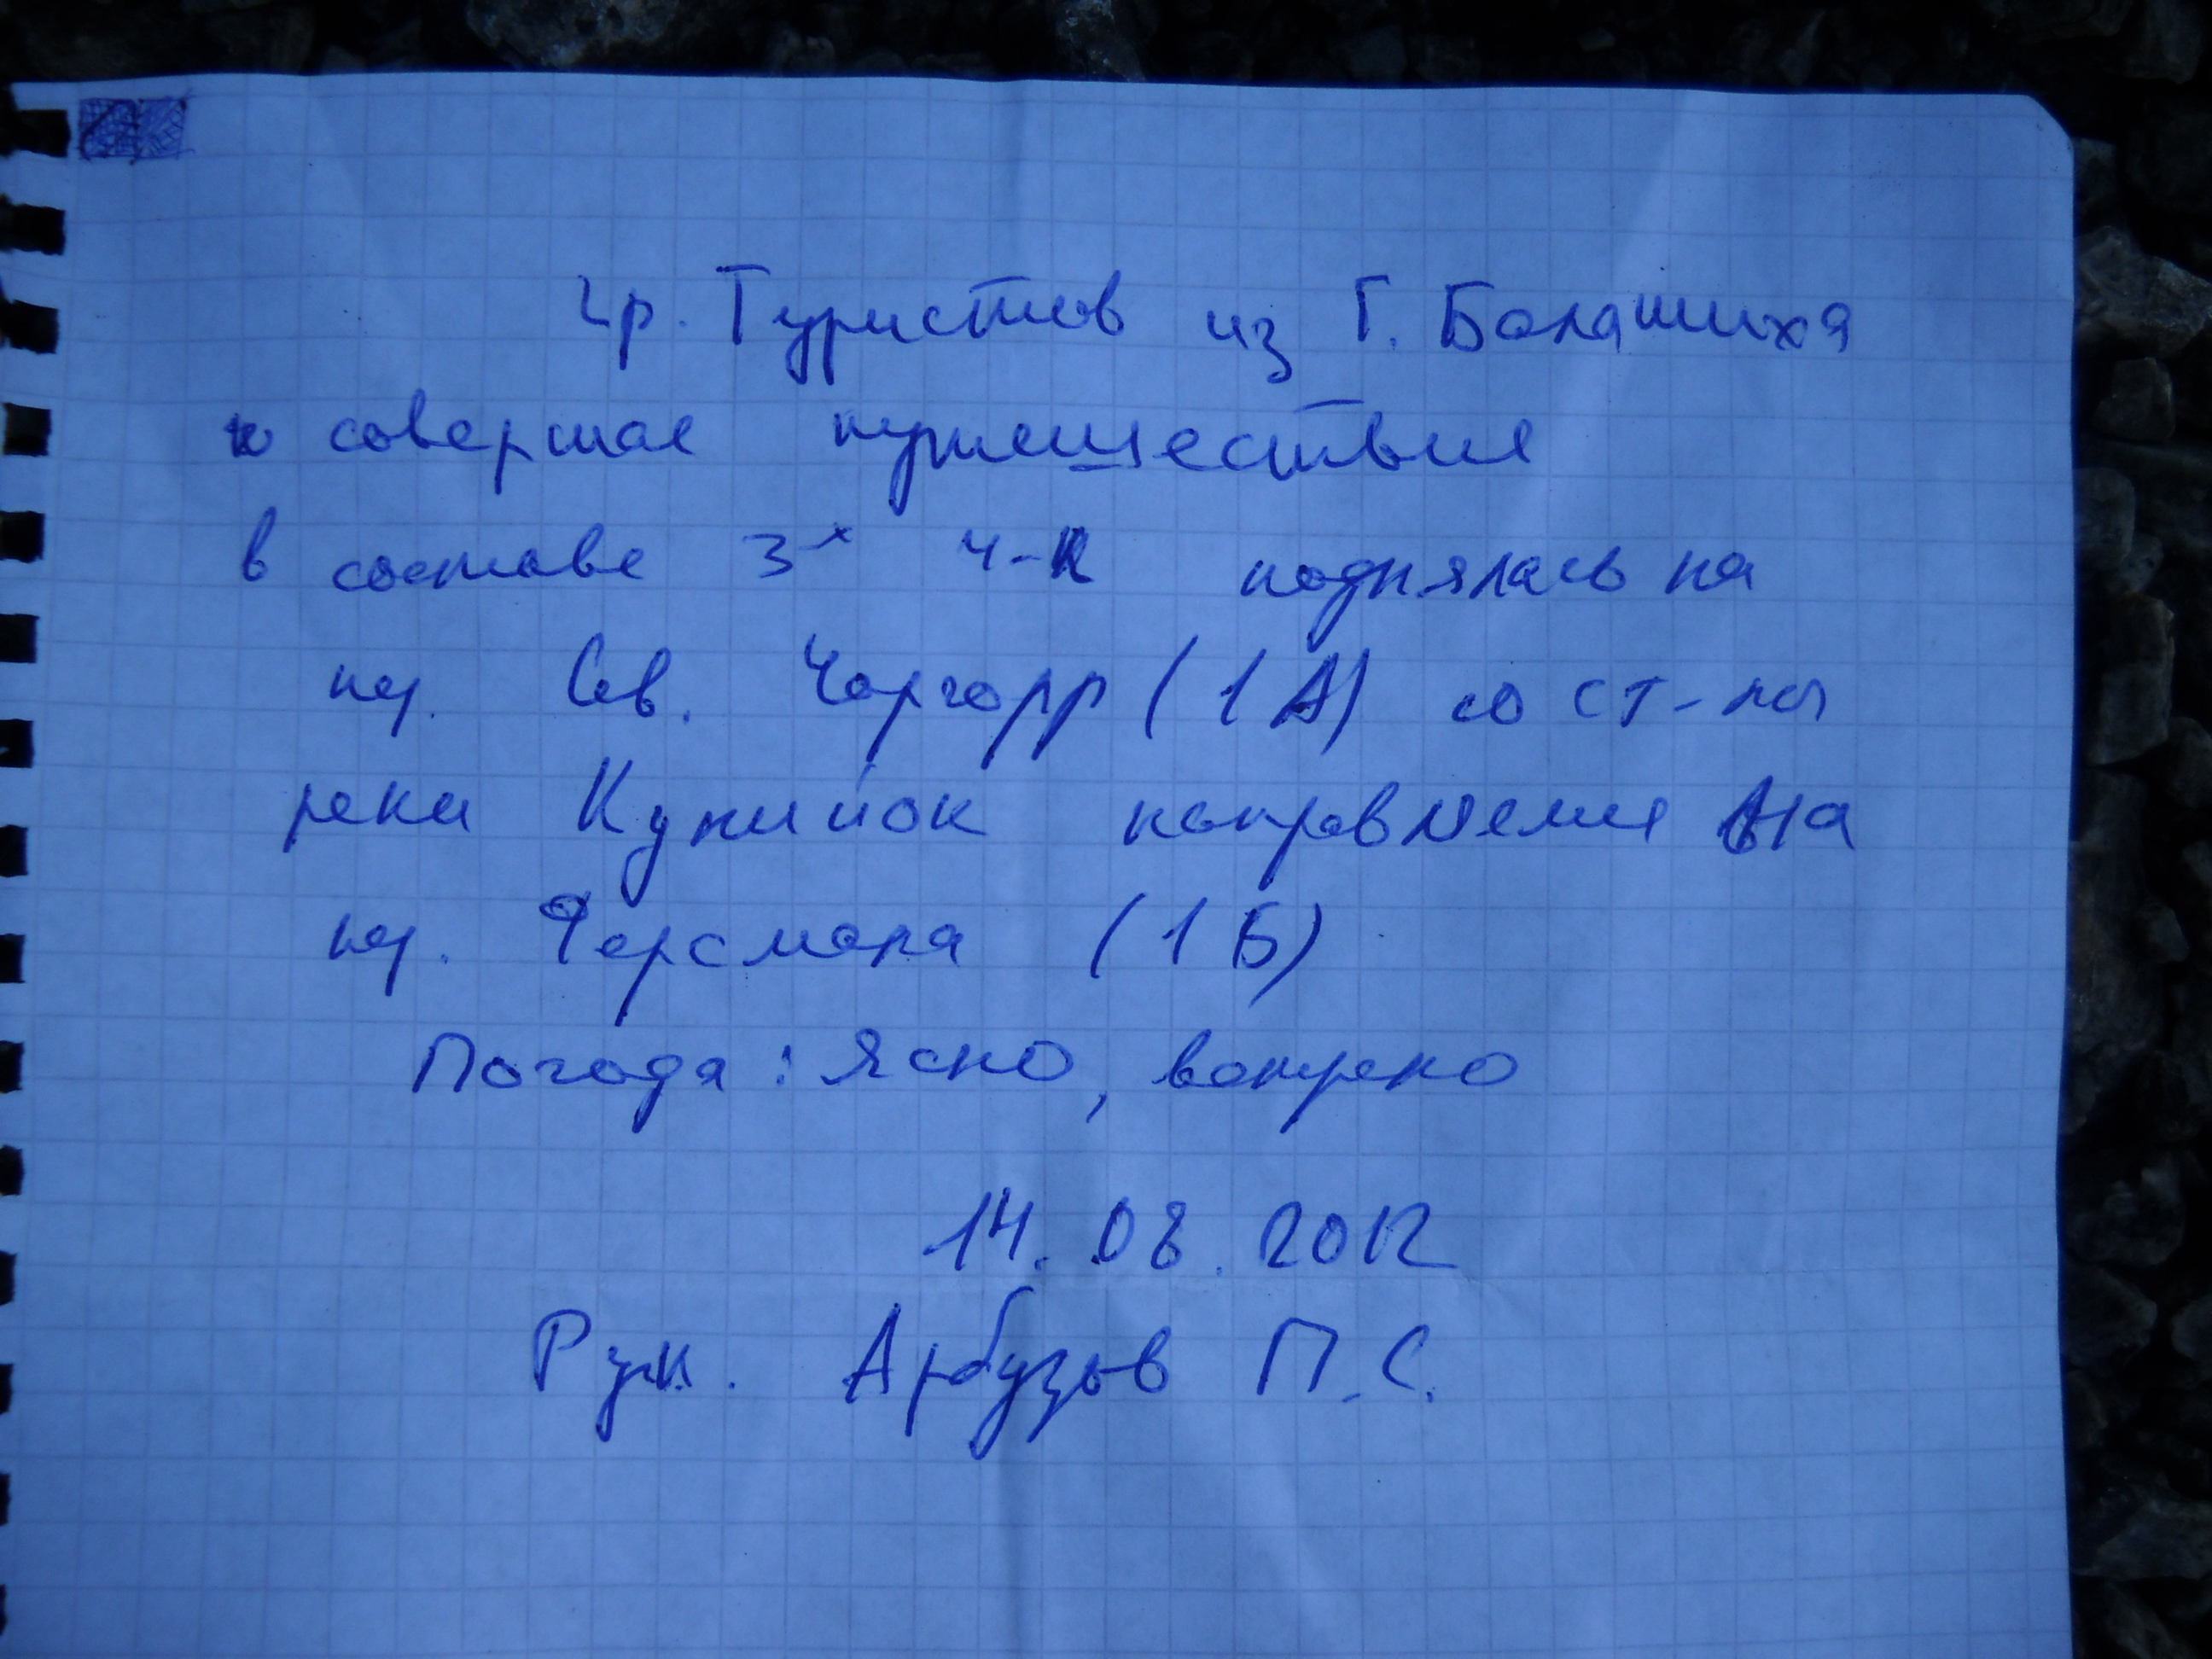 гр. Туристов из Г. Балашиха
совершая путешествие
в составе 3х ч-к поднялась на
пер. Сев. Чоргорр (1А) со ст-ны
реки Кунийок направление на
пер. Ферсмана (1Б)
Погода: Ясно, ветрено
14.08.2012
Рук. Арбузов П.С.